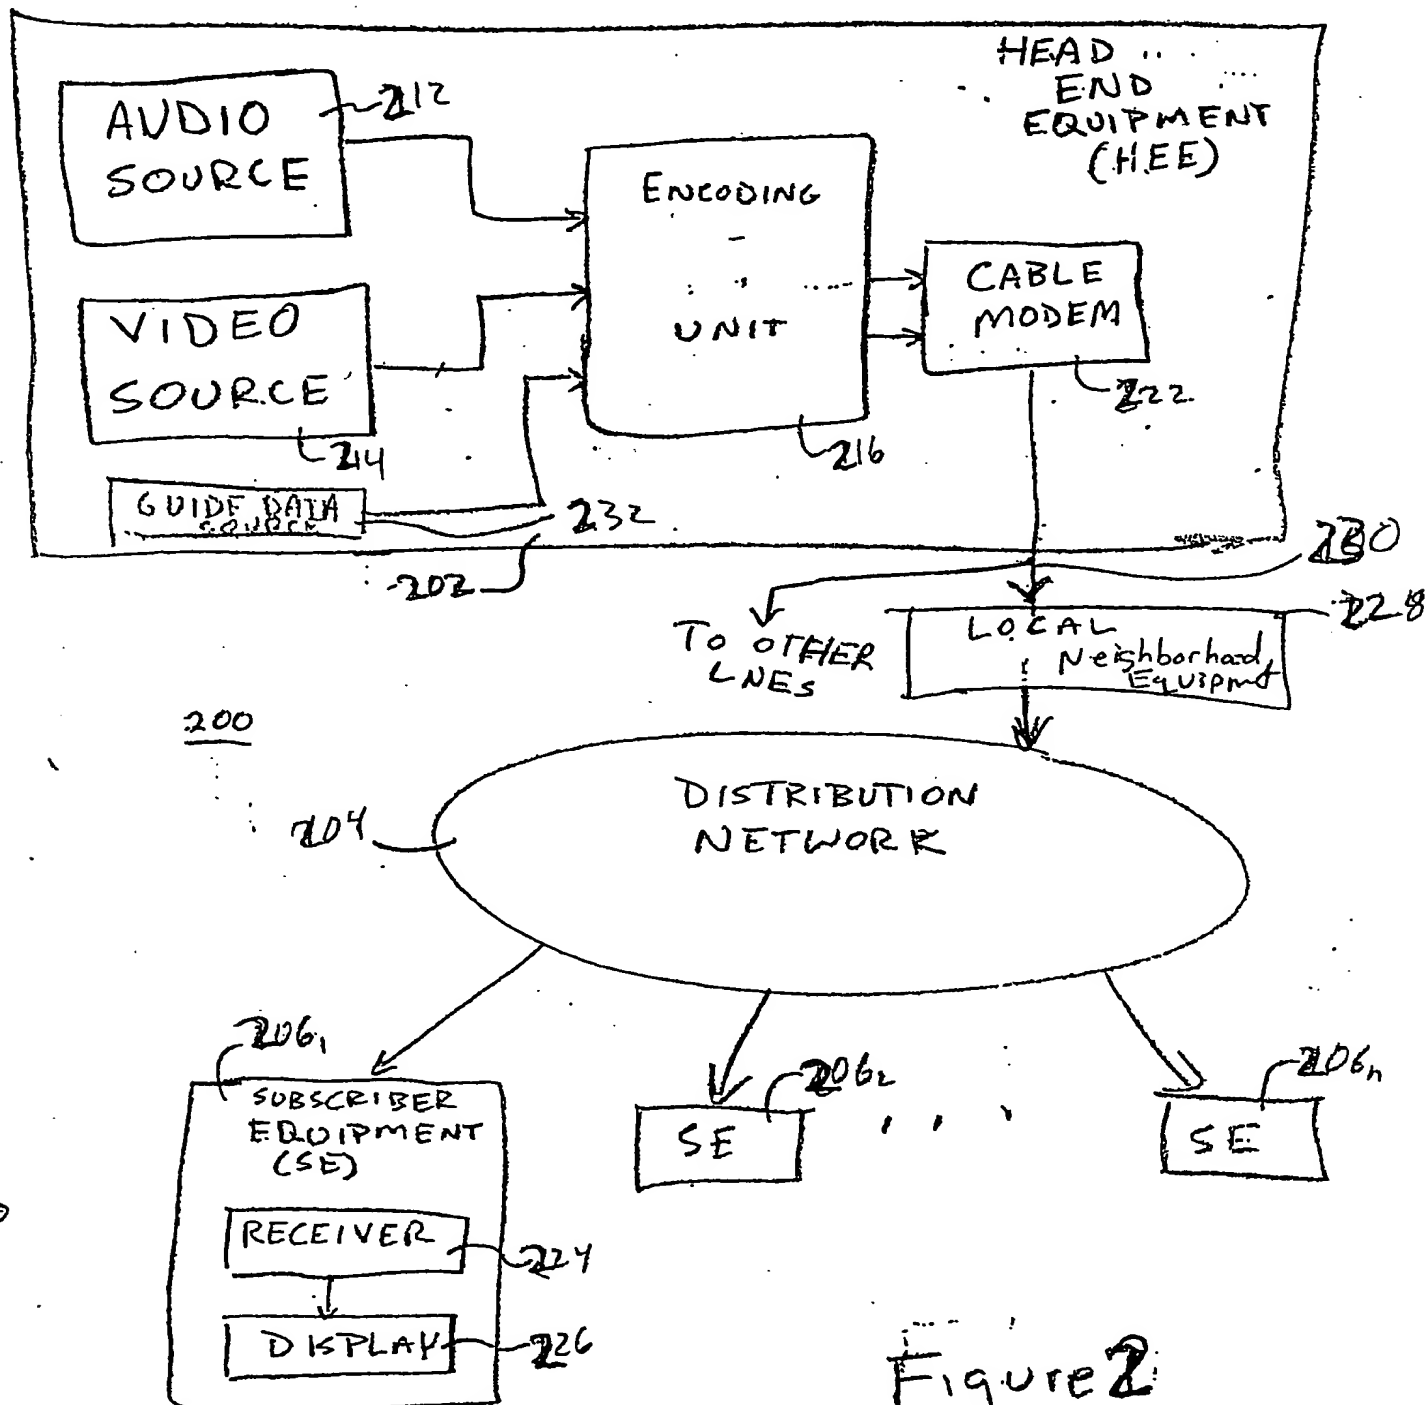 HEAD
END
EQUIPMENT
(HEE)
AUDIO
SOURCE
212
ENCODING
UNIT
216
CABLE
MODEM
222
VIDEO
SOURCE
214
GUIDE DATA
SOURCE
232
202
230
228
TO OTHER
LNES
LOCAL
Neighborhood
Equipmt
200
204
DISTRIBUTION
NETWORK
206₁
SUBSCRIBER
EQUIPMENT
(SE)
RECEIVER
224
DISPLAY
226
206₂
SE
206ₙ
SE
Figure 2